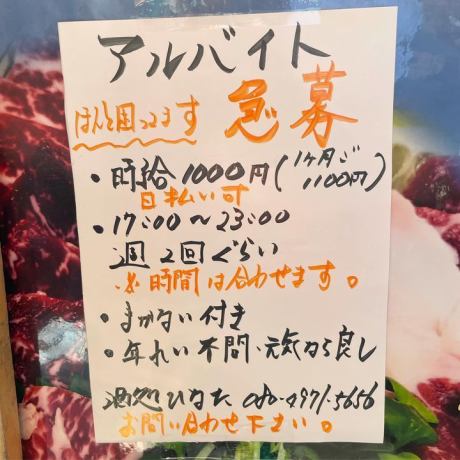 アルバイト
ほんと困ってます 急募
・時給1000円(1ヶ月ご1100円)
日払い可
・17:00～23:00
週2回ぐらい
※時間は合わせます。
・まかない付き
・年れい不問・元気なら良し
酒処ひなた 080-2971-5656
お問い合わせ下さい。